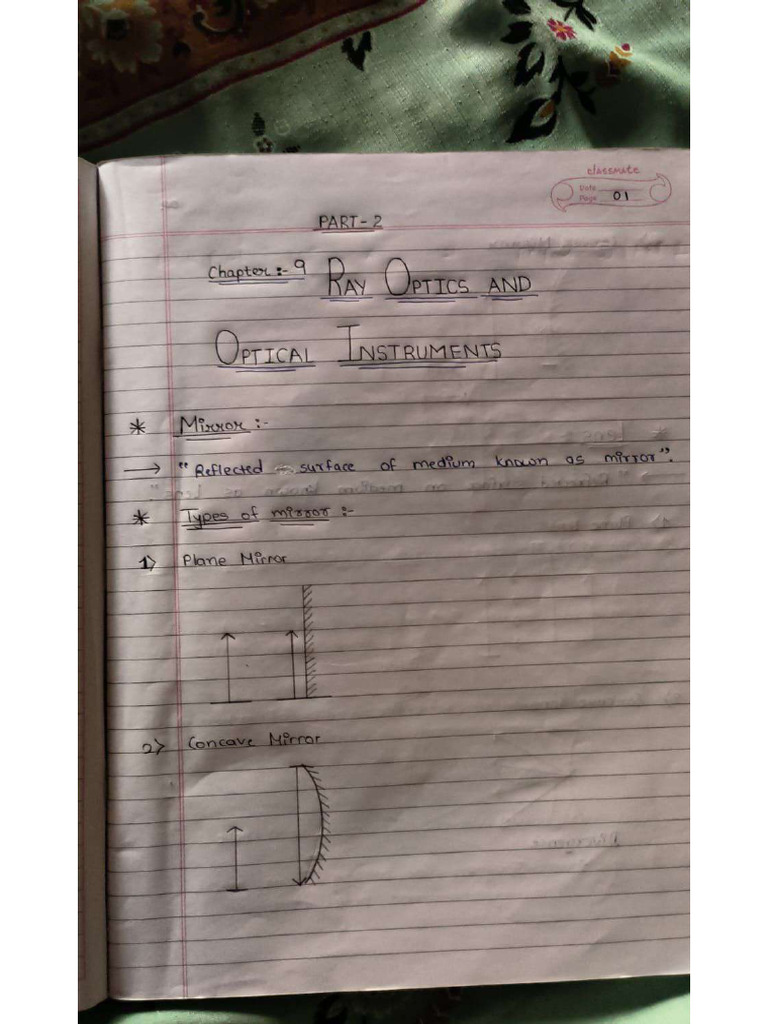 classmate
Date
Page 01
PART-2
Chapter :- 9 RAY OPTICS AND
OPTICAL INSTRUMENTS
* Mirror :-
→ "Reflected surface of medium known as mirror".
* Types of mirror :-
1) Plane Mirror
2) Concave Mirror